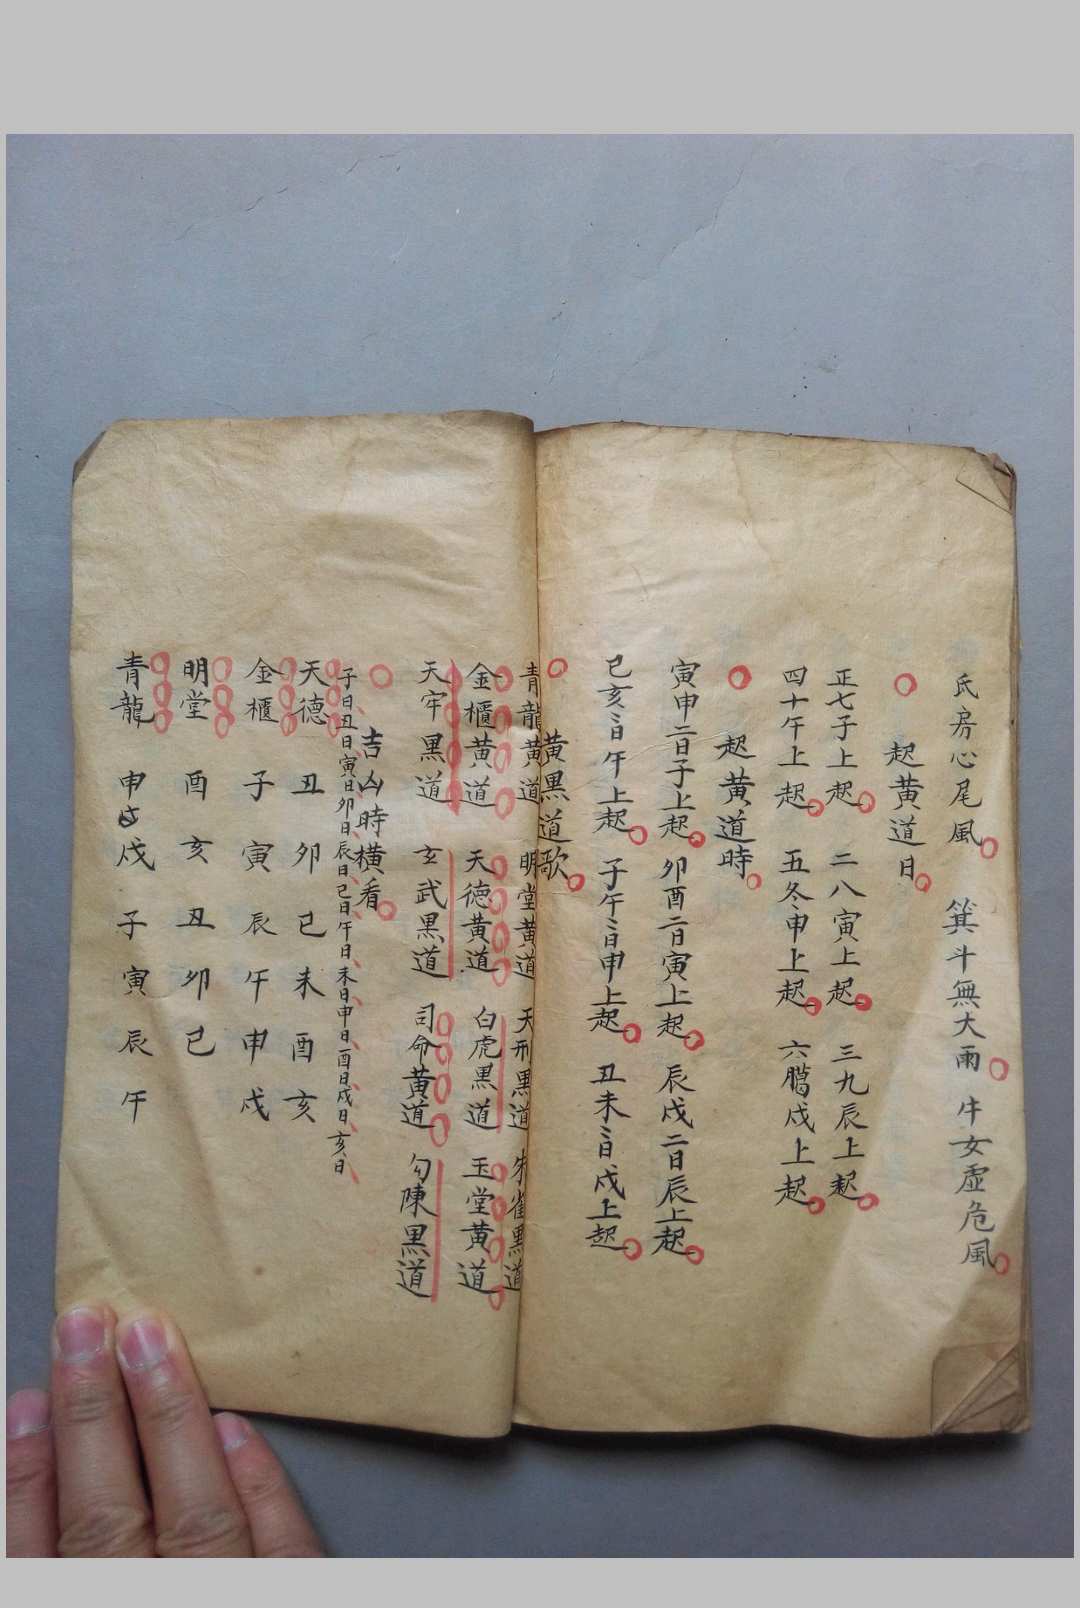 氐房心尾風 箕斗無大雨 牛女虛危風
起黄道日
正七子上起 二八寅上起 三九辰上起
四十午上起 五冬申上起 六臈戌上起
起黄道時
寅申二日子上起 卯酉二日寅上起 辰戌二日辰上起
巳亥二日午上起 子午二日申上起 丑未二日戌上起
黄黑道歌
青龍黄道 明堂黄道 天刑黑道 朱雀黑道
金櫃黄道 天德黄道 白虎黑道 玉堂黄道
天牢黑道 玄武黑道 司命黄道 勾陳黑道
吉凶時橫看
子日丑日寅日卯日辰日巳日午日未日申日酉日戌日亥日
天德 丑 卯 巳 未 酉 亥
金櫃 子 寅 辰 午 申 戌
明堂 酉 亥 丑 卯 巳
青龍 申 戌 子 寅 辰 午